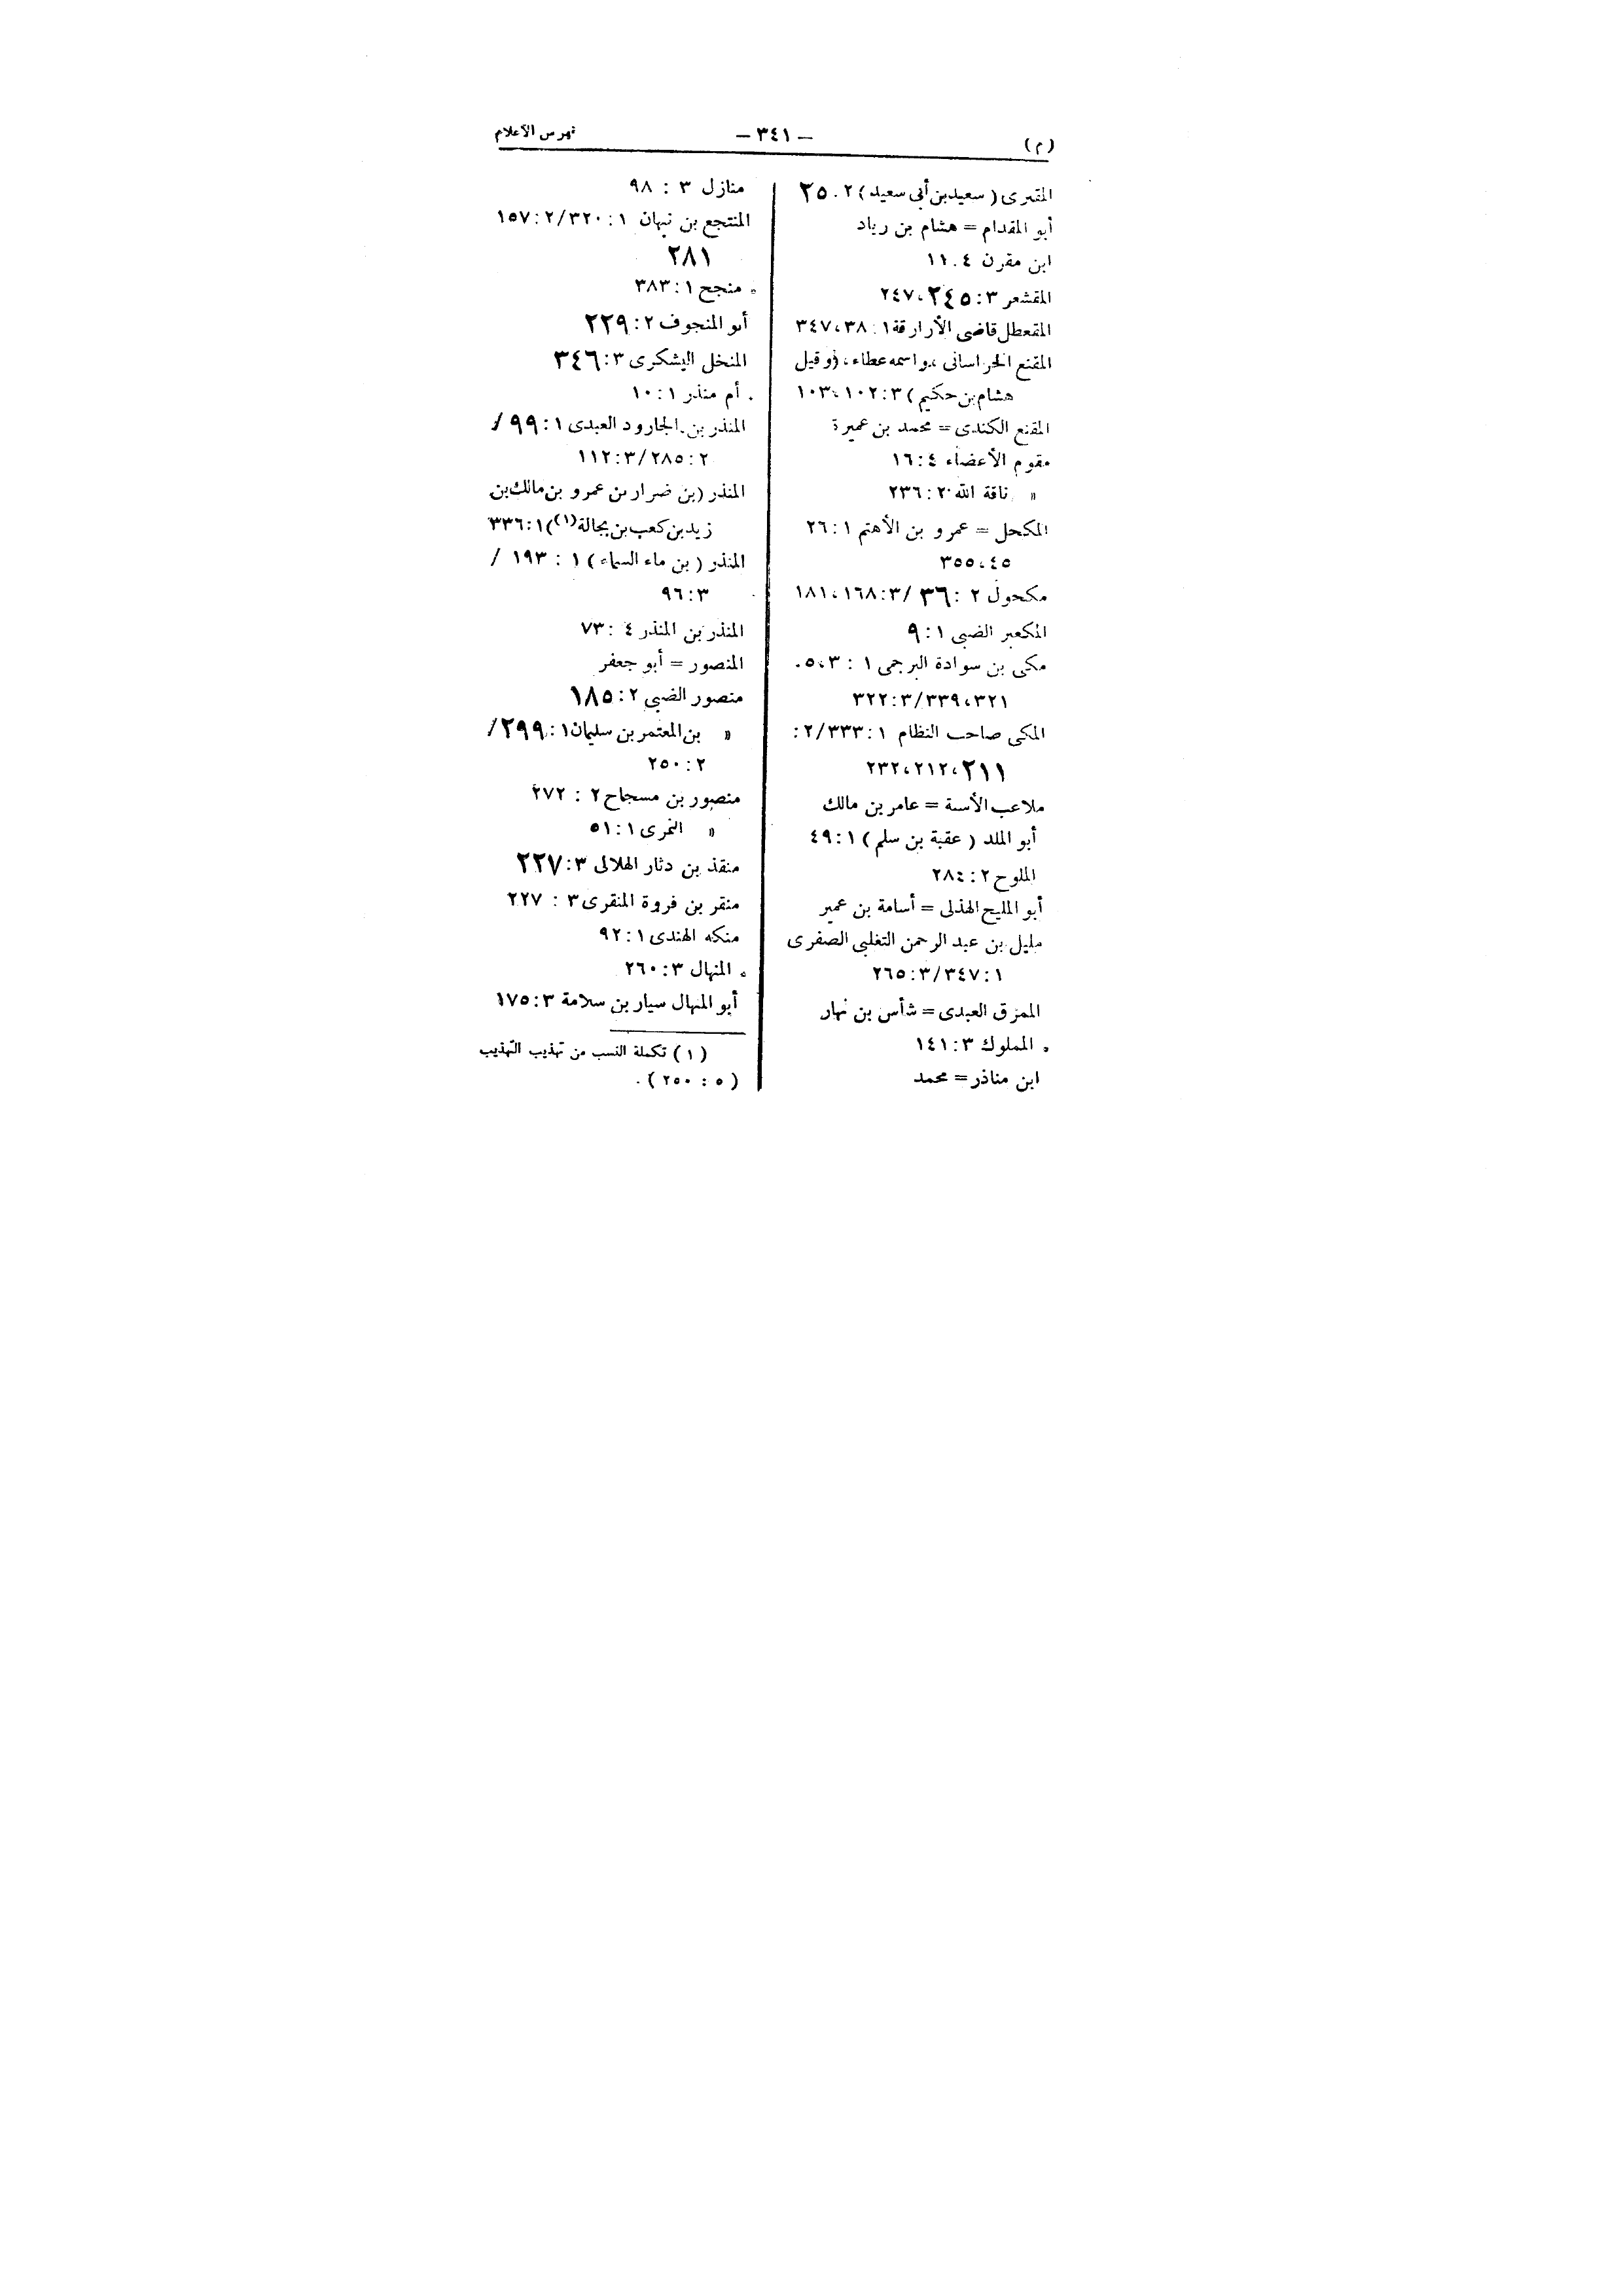 (م)
— ٣٤١ —
فهرس الأعلام
المقبرى (سعيد بن أبى سعيد) ٢ . ٢٥
أبو المقدام = هشام بن زياد
ابن مقرن ٤ . ١١
المقشعر ٣ : ٢٤٥، ٢٤٧
المقعطل قاضى الأزارقة ١ : ٣٨، ٣٤٧
المقنع الخراسانى، واسمه عطاء، (وقيل
هشام بن حكيم) ٣ : ١٠٢، ١٠٣
المقنع الكندى = محمد بن عميرة
مقوم الأعضاء ٤ : ١٦
» ناقة الله ٢ : ٢٣٦
المكحل = عمرو بن الأهتم ١ : ٢٦
٤٥، ٣٥٥
مكحول ٢ : ٣٦ / ٣ : ١٦٨، ١٨١
المكعبر الضبى ١ : ٩
مكى بن سوادة البرجمى ١ : ٣، ٥.
٣٢١، ٣٣٩ / ٣ : ٣٢٢
المكى صاحب النظام ١ : ٣٣٣ / ٢ :
٢١١، ٢١٢، ٢٣٢
ملاعب الأسنة = عامر بن مالك
أبو الملد (عقبة بن سلم) ١ : ٤٩
الملوح ٢ : ٢٨٤
أبو المليح الهذلى = أسامة بن عمير
مليل بن عبد الرحمن التغلبى الصفرى
١ : ٣٤٧ / ٣ : ٢٦٥
الممزق العبدى = شأس بن نهار
. المملوك ٣ : ١٤١
ابن مناذر = محمد
منازل ٣ : ٩٨
المنتجع بن نبهان ١ : ٣٢٠ / ٢ : ١٥٧
٢٨١
. منجح ١ : ٣٨٣
أبو المنجوف ٢ : ٢٢٩
المنخل اليشكرى ٣ : ٣٤٦
. أم منذر ١ : ١٠
المنذر بن الجارود العبدى ١ : ٩٩ /
٢ : ٢٨٥ / ٣ : ١١٢
المنذر (بن ضرار بن عمرو بن مالك بن
زيد بن كعب بن بجالة (١)) ١ : ٣٣٦
المنذر (بن ماء السماء) ١ : ١٩٣ /
٣ : ٩٦
المنذر بن المنذر ٤ : ٧٣
المنصور = أبو جعفر
منصور الضبى ٢ : ١٨٥
» بن المعتمر بن سليمان ١ : ٢٩٩ /
٢ : ٢٥٠
منصور بن مسجاح ٢ : ٢٧٢
» النمرى ١ : ٥١
منقذ بن دثار الهلالى ٣ : ٢٢٧
منقر بن فروة المنقرى ٣ : ٢٢٧
منكه الهندى ١ : ٩٢
. المنهال ٣ : ٢٦٠
أبو المنهال سيار بن سلامة ٣ : ١٧٥
(١) تكملة النسب من تهذيب التهذيب
(٥ : ٢٥٠).